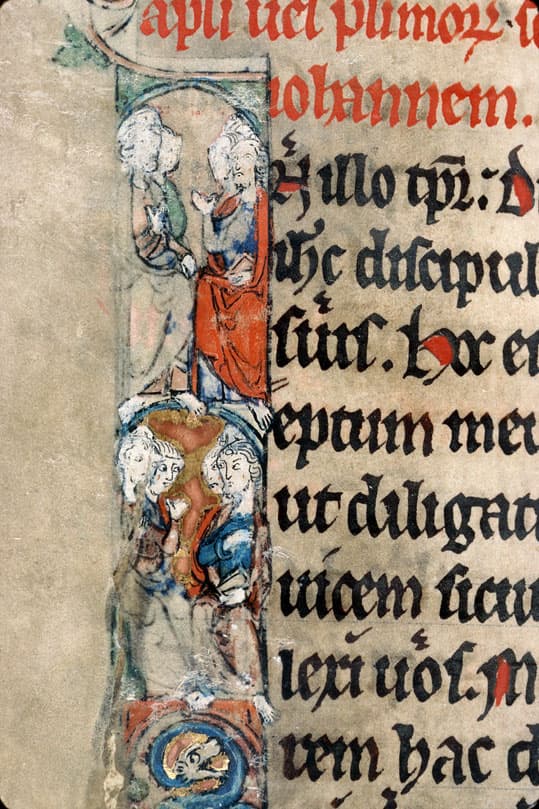 apli uel plimorꝝ
iohannem.
N illo tp̄r: D
ih̄c discipul
suis. hoc e
eptum meu
ut diligat
uicem sicu
lexi uos. M
rem hac